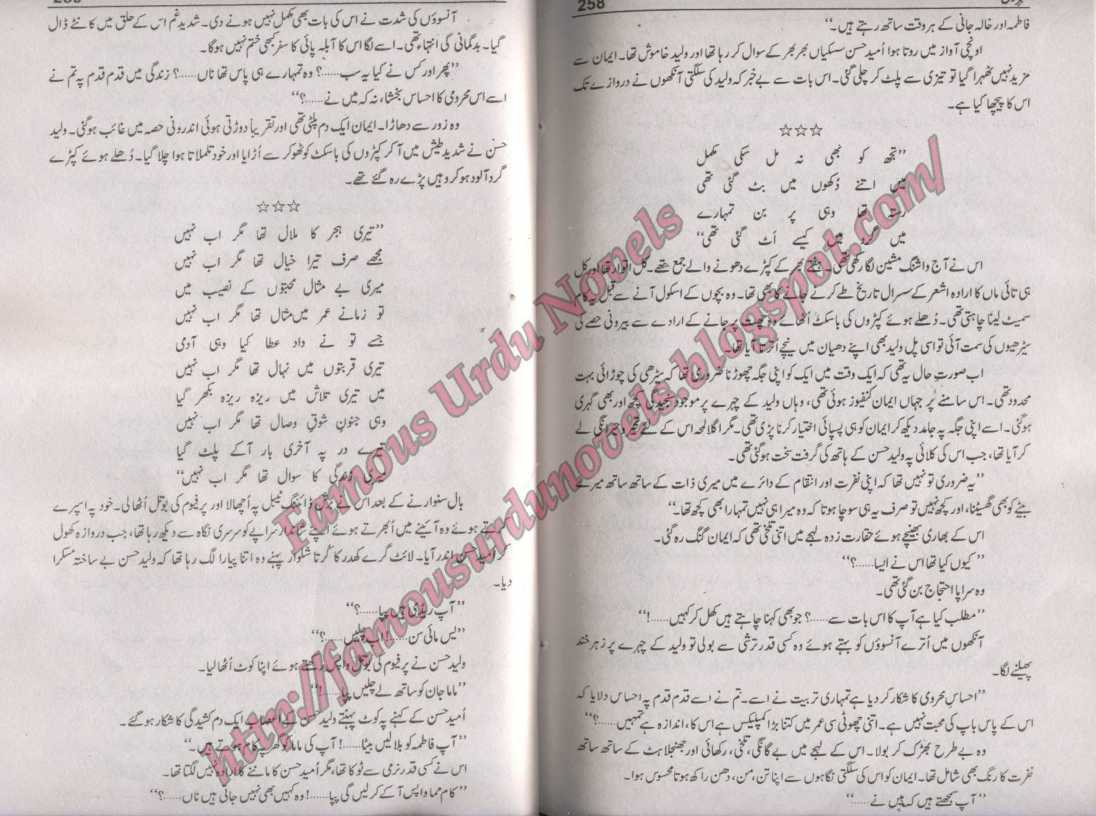 258
فاطمہ اور خالہ جانی کے ہر وقت ساتھ رہتے ہیں۔‘‘
اونچی آواز میں روتا ہوا اُمید حسن سسکیاں بھر بھر کے سوال کر رہا تھا اور ولید خاموش تھا۔ ایمان سے
مزید نہیں ٹھہرا گیا تو تیزی سے پلٹ کر چلی گئی۔ اس بات سے بے خبر کہ ولید کی سلگتی آنکھوں نے دروازے تک
اس کا پیچھا کیا ہے۔
☆☆☆
’’تجھ کو بھی نہ مل سکی مکمل
میں اتنے دُکھوں میں بٹ گئی تھی
رستہ تھا وہی پر بن تمہارے
میں گرد میں کیسے اَٹ گئی تھی‘‘
اس نے آج واشنگ مشین لگا رکھی تھی۔ ہفتے بھر کے کپڑے دھونے والے جمع تھے۔ کل اتوار تھا اور کل
ہی تائی ماں کا ارادہ اشعر کے سسرال تاریخ طے کرنے جانے کا بھی تھا۔ وہ بچوں کے اسکول آنے سے قبل یہ کام
سمیٹ لینا چاہتی تھی۔ دُھلے ہوئے کپڑوں کی باسکٹ اُٹھائے وہ چھت پر جانے کے ارادے سے بیرونی حصے کی
سیڑھیوں کی سمت آئی تو اسی پل ولید بھی اپنے دھیان میں نیچے اُترتا آیا تھا۔
اب صورتِ حال یہ تھی کہ ایک وقت میں ایک کو اپنی جگہ چھوڑنا ضروری تھا کہ سیڑھی کی چوڑائی بہت
محدود تھی۔ اس سامنے پر جہاں ایمان کنفیوز ہوئی تھی، وہاں ولید کے چہرے پر موجود سنجیدگی کچھ اور بھی گہری
ہو گئی۔ اسے اپنی جگہ پہ جامد دیکھ کر ایمان کو ہی پسپائی اختیار کرنا پڑی تھی۔ مگر اگلا لمحہ اس کے لئے تحیر و بیگانگی لے
کر آیا تھا، جب اس کی کلائی پہ ولید حسن کے ہاتھ کی گرفت سخت ہو گئی تھی۔
’’یہ ضروری تو نہیں تھا کہ اپنی نفرت اور انتقام کے دائرے میں میری ذات کے ساتھ ساتھ میرے
بیٹے کو بھی گھسیٹتا، اور کچھ نہیں تو صرف یہ ہی سوچا ہوتا کہ وہ میرا ہی نہیں تمہارا بھی کچھ تھا۔‘‘
اس کے بھاری بھینچے ہوئے حقارت زدہ لہجے میں اتنی تلخی تھی کہ ایمان گنگ رہ گئی۔
’’کیوں کیا تھا اس نے ایسا……؟‘‘
وہ سراپا احتجاج بن گئی تھی۔
’’مطلب کیا ہے آپ کا اس بات سے……؟ جو بھی کہنا چاہتے ہیں کھل کر کہیں……!‘‘
آنکھوں میں اُترے آنسوؤں کو پیتے ہوئے وہ کسی قدر ترشی سے بولی تو ولید کے چہرے پر زہر خند
پھیلنے لگا۔
’’احساسِ محرومی کا شکار کر دیا ہے تمہاری تربیت نے اسے۔ تم نے اسے قدم قدم پہ احساس دلایا کہ
اس کے پاس باپ کی محبت نہیں ہے۔ اتنی چھوٹی سی عمر میں کتنا بڑا کمپلیکس ہے اس کا، اندازہ ہے تمہیں……؟‘‘
وہ بے طرح بھڑک کر بولا۔ اس کے لہجے میں بے گانگی، تلخی، رکھائی اور جھنجلاہٹ کے ساتھ ساتھ
نفرت کا رنگ بھی شامل تھا۔ ایمان کو اس کی سلگتی نگاہوں سے اپنا تن، من، دھن راکھ ہوتا محسوس ہوا۔
’’آپ سمجھتے ہیں کہ میں نے……‘‘
آنسوؤں کی شدت نے اس کی بات بھی مکمل نہیں ہونے دی۔ شدید غم اس کے حلق میں کانٹے ڈال
گیا۔ بدگمانی کی انتہا تھی۔ اسے لگا اس کا آبلہ پائی کا سفر کبھی ختم نہیں ہوگا۔
’’پھر اور کس نے کیا یہ سب……؟ وہ تمہارے ہی پاس تھا ناں……؟ زندگی میں قدم قدم پہ تم نے
اسے اس محرومی کا احساس بخشا، نہ کہ میں نے……؟‘‘
وہ زور سے دھاڑا۔ ایمان ایک دم پلٹی تھی اور تقریباً دوڑتی ہوئی اندرونی حصہ میں غائب ہو گئی۔ ولید
حسن نے شدید طیش میں آ کر کپڑوں کی باسکٹ کو ٹھوکر سے اُڑایا اور خود تلملاتا ہوا چلا گیا۔ دُھلے ہوئے کپڑے
گرد آلود ہو کر وہیں پڑے رہ گئے تھے۔
☆☆☆
’’تیری ہجر کا ملال تھا مگر اب نہیں
مجھے صرف تیرا خیال تھا مگر اب نہیں
میری بے مثال محبتوں کے نصیب میں
تو زمانے عمر میں مثال تھا مگر اب نہیں
جسے تو نے داد عطا کیا وہی آدمی
تیری قربتوں میں نہال تھا مگر اب نہیں
میں تیری تلاش میں ریزہ ریزہ بکھر گیا
وہی جنونِ شوقِ وصال تھا مگر اب نہیں
تیرے در پہ آخری بار آکے پلٹ گیا
میری زندگی کا سوال تھا مگر اب نہیں‘‘
بال سنوارنے کے بعد اس نے برش ڈائننگ ٹیبل پہ اُچھالا اور پرفیوم کی بوتل اُٹھا لی۔ خود پہ اسپرے
کرتے ہوئے وہ آئینے میں اُبھرتے ہوئے اپنے شاندار سراپے کو سرسری نگاہ سے دیکھ رہا تھا، جب دروازہ کھول
کر اُمید حسن اندر آیا۔ لائٹ گرے کھدر کا کُرتا شلوار پہنے وہ اتنا پیارا لگ رہا تھا کہ ولید حسن بے ساختہ مسکرا
دیا۔
’’آپ ریڈی ہیں پپا……؟‘‘
’’یس مائی سن……! اب چلیں……؟‘‘
ولید حسن نے پرفیوم کی بوتل واپس رکھتے ہوئے اپنا کوٹ اُٹھا لیا۔
’’ماما جان کو ساتھ لے چلیں پپا……!‘‘
اُمید حسن کے کہنے پہ کوٹ پہنتے ولید حسن کے اعصاب ایک دم کشیدگی کا شکار ہو گئے۔
’’آپ فاطمہ کو بلا لیں بیٹا……! آپ کی ماما کو گھر پہ کام ہوتے ہیں۔‘‘
اس نے کسی قدر نرمی سے ٹوکا تھا، مگر اُمید حسن کا ماننے کا ارادہ نہیں لگتا تھا۔
’’کام مما واپس آکے کر لیں گی پپا……! وہ کہیں بھی نہیں جاتی ہیں ناں……‘‘
Famous Urdu Novels
http://famousurdunovels.blogspot.com/